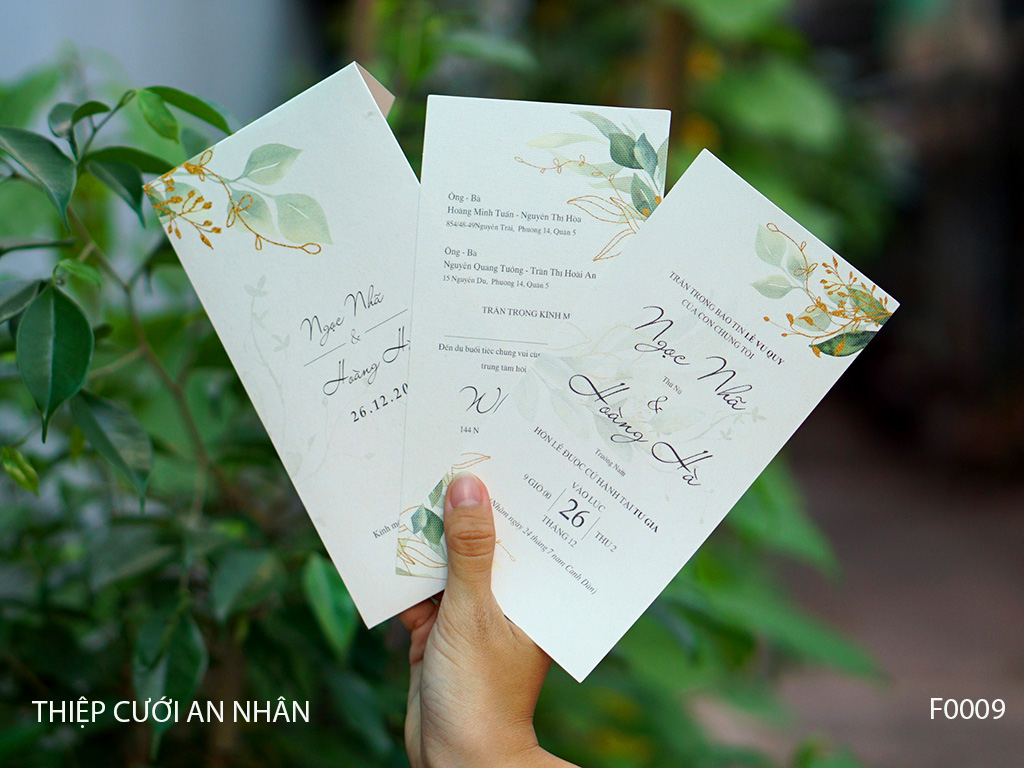 Ngọc Nhã
&
Hoàng H
26.12.20
Kính mẹ
Ông - Bà
Hoàng Minh Tuấn - Nguyễn Thị Hòa
854/48-49Nguyễn Trãi, Phường 14, Quận 5
Ông - Bà
Nguyễn Quang Tường - Trần Thị Hoài An
15 Nguyễn Du, Phường 14, Quận 5
TRÂN TRỌNG KÍNH M
Đến dự buổi tiệc chung vui cùn
trung tâm hội
144 N
TRÂN TRỌNG BÁO TIN LỄ VU QUY
CỦA CON CHÚNG TÔI
Ngọc Nhã
Thứ Nữ
&
Hoàng Hà
Trưởng Nam
HÔN LỄ ĐƯỢC CỬ HÀNH TẠI TƯ GIA
VÀO LÚC
9 GIỜ 00
26
THỨ 2
THÁNG 12
(Nhằm ngày 24 tháng 7 năm Canh Dần)
THIỆP CƯỚI AN NHÂN
F0009